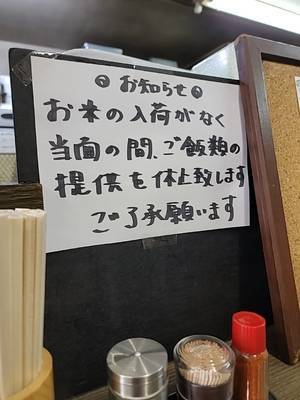 お知らせ
お本の入荷がなく
当面の間、ご飯類の
提供を体止致します
ご了承願います